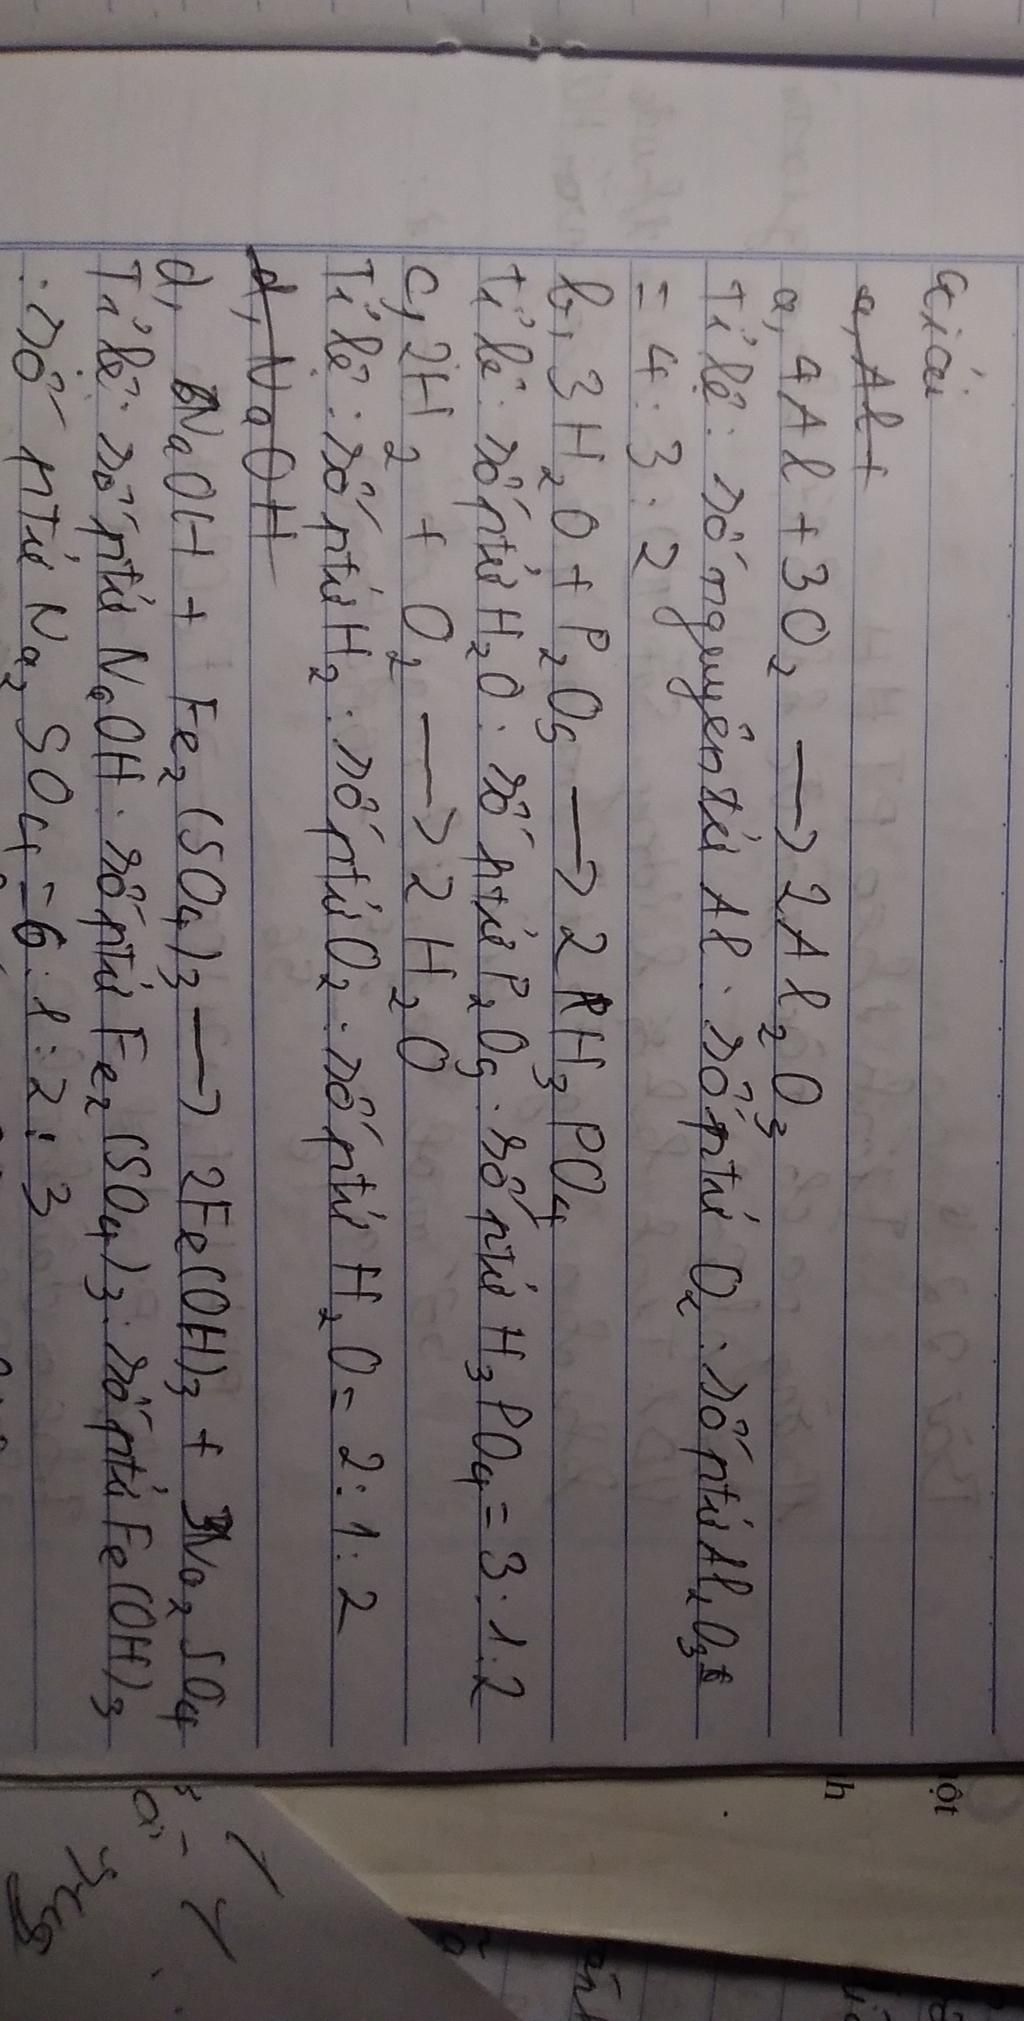 Giải
a, Al +
a, 4Al + 3O₂ → 2Al₂O₃
Tỉ lệ: số nguyên tử Al : số ptử O₂ : số ptử Al₂O₃
= 4 : 3 : 2
b, 3H₂O + P₂O₅ → 2H₃PO₄
tỉ lệ: số ptử H₂O : số ptử P₂O₅ : số ptử H₃PO₄ = 3 : 1 : 2
c, 2H₂ + O₂ → 2H₂O
Tỉ lệ: số ptử H₂ : số ptử O₂ : số ptử H₂O = 2 : 1 : 2
d, NaOH
d, NaOH + Fe₂(SO₄)₃ → 2Fe(OH)₃ + 3Na₂SO₄
Tỉ lệ: số ptử NaOH : số ptử Fe₂(SO₄)₃ : số ptử Fe(OH)₃
: số ptử Na₂SO₄ = 6 : 1 : 2 : 3
ột
h